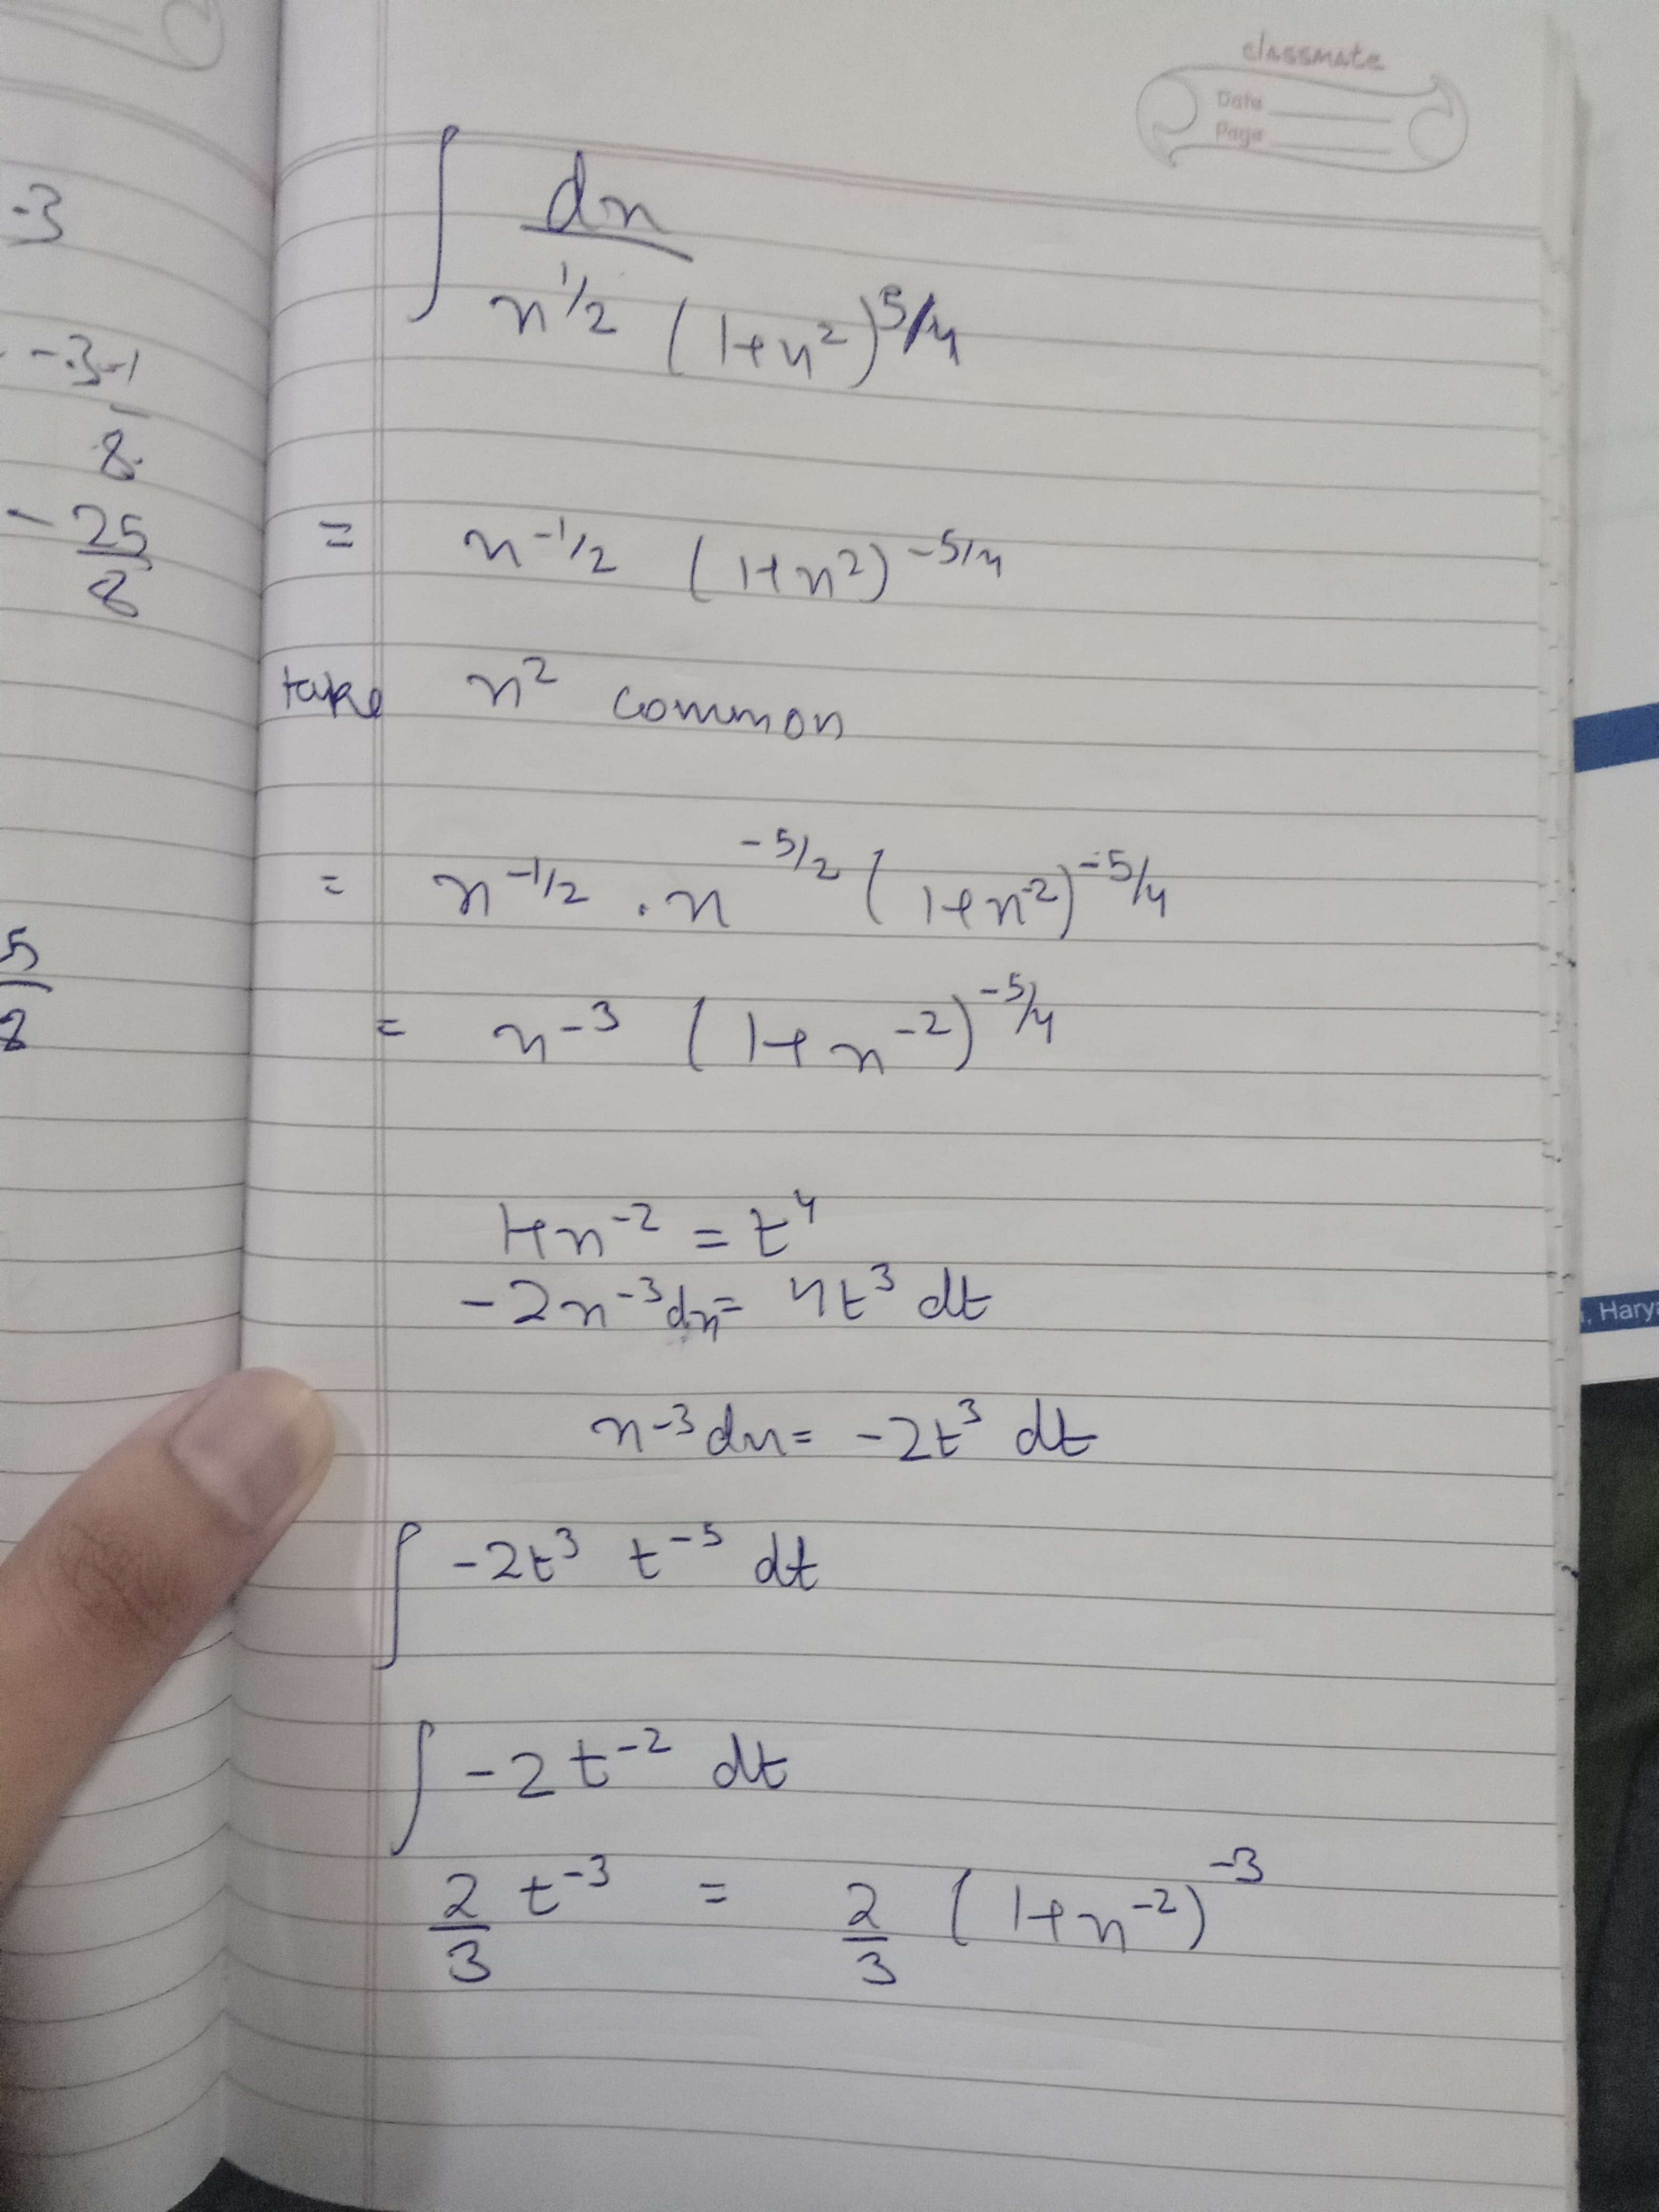 classmate
Date
Page
-3
- -3-1
8
- 25/8
5/8
∫ dx / x^1/2 (1+x^2)^5/4
= x^-1/2 (1+x^2)^-5/4
take x^2 common
= x^-1/2 . x^-5/2 (1+x^-2)^-5/4
= x^-3 (1+x^-2)^-5/4
1+x^-2 = t^4
-2x^-3 dx = 4t^3 dt
x^-3 dx = -2t^3 dt
∫ -2t^3 t^-5 dt
∫ -2t^-2 dt
2/3 t^-3 = 2/3 (1+x^-2)^-3